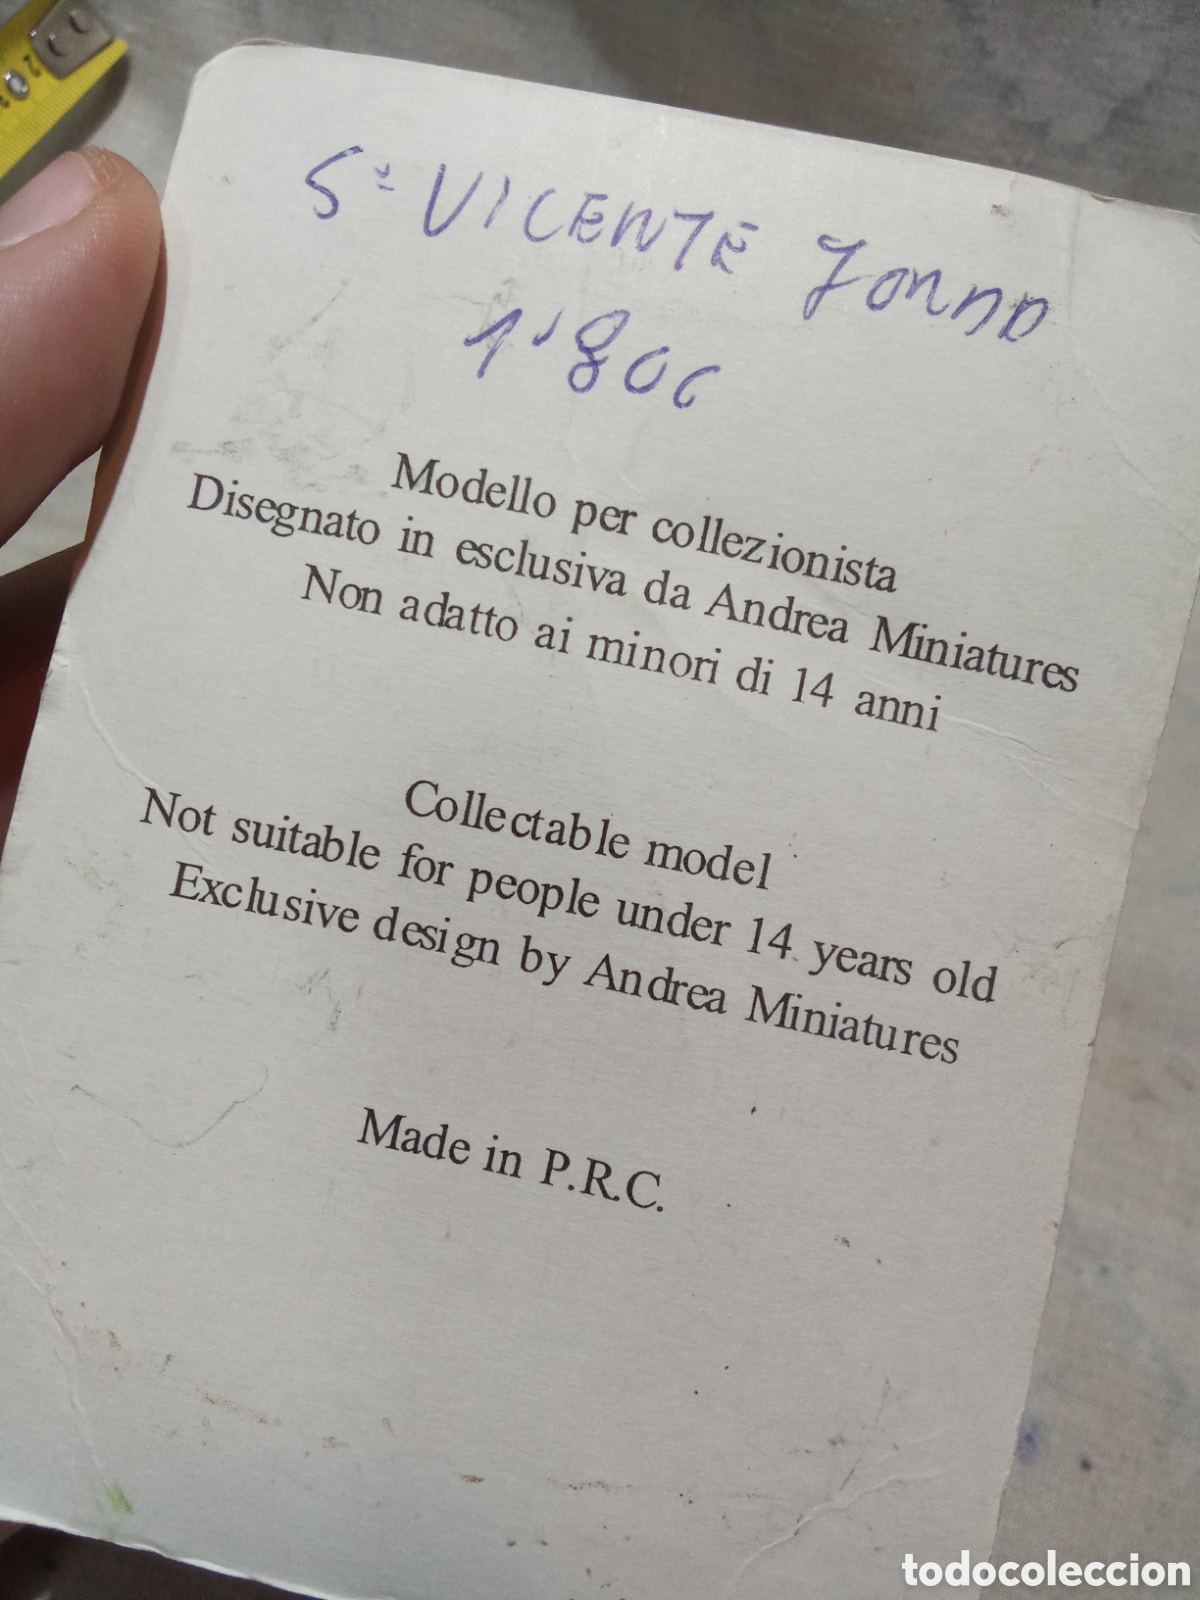 Sº VICENTE
1'80c
Modello per collezionista
Disegnato in esclusiva da Andrea Miniatures
Non adatto ai minori di 14 anni
Collectable model
Not suitable for people under 14 years old
Exclusive design by Andrea Miniatures
Made in P.R.C.
todocoleccion